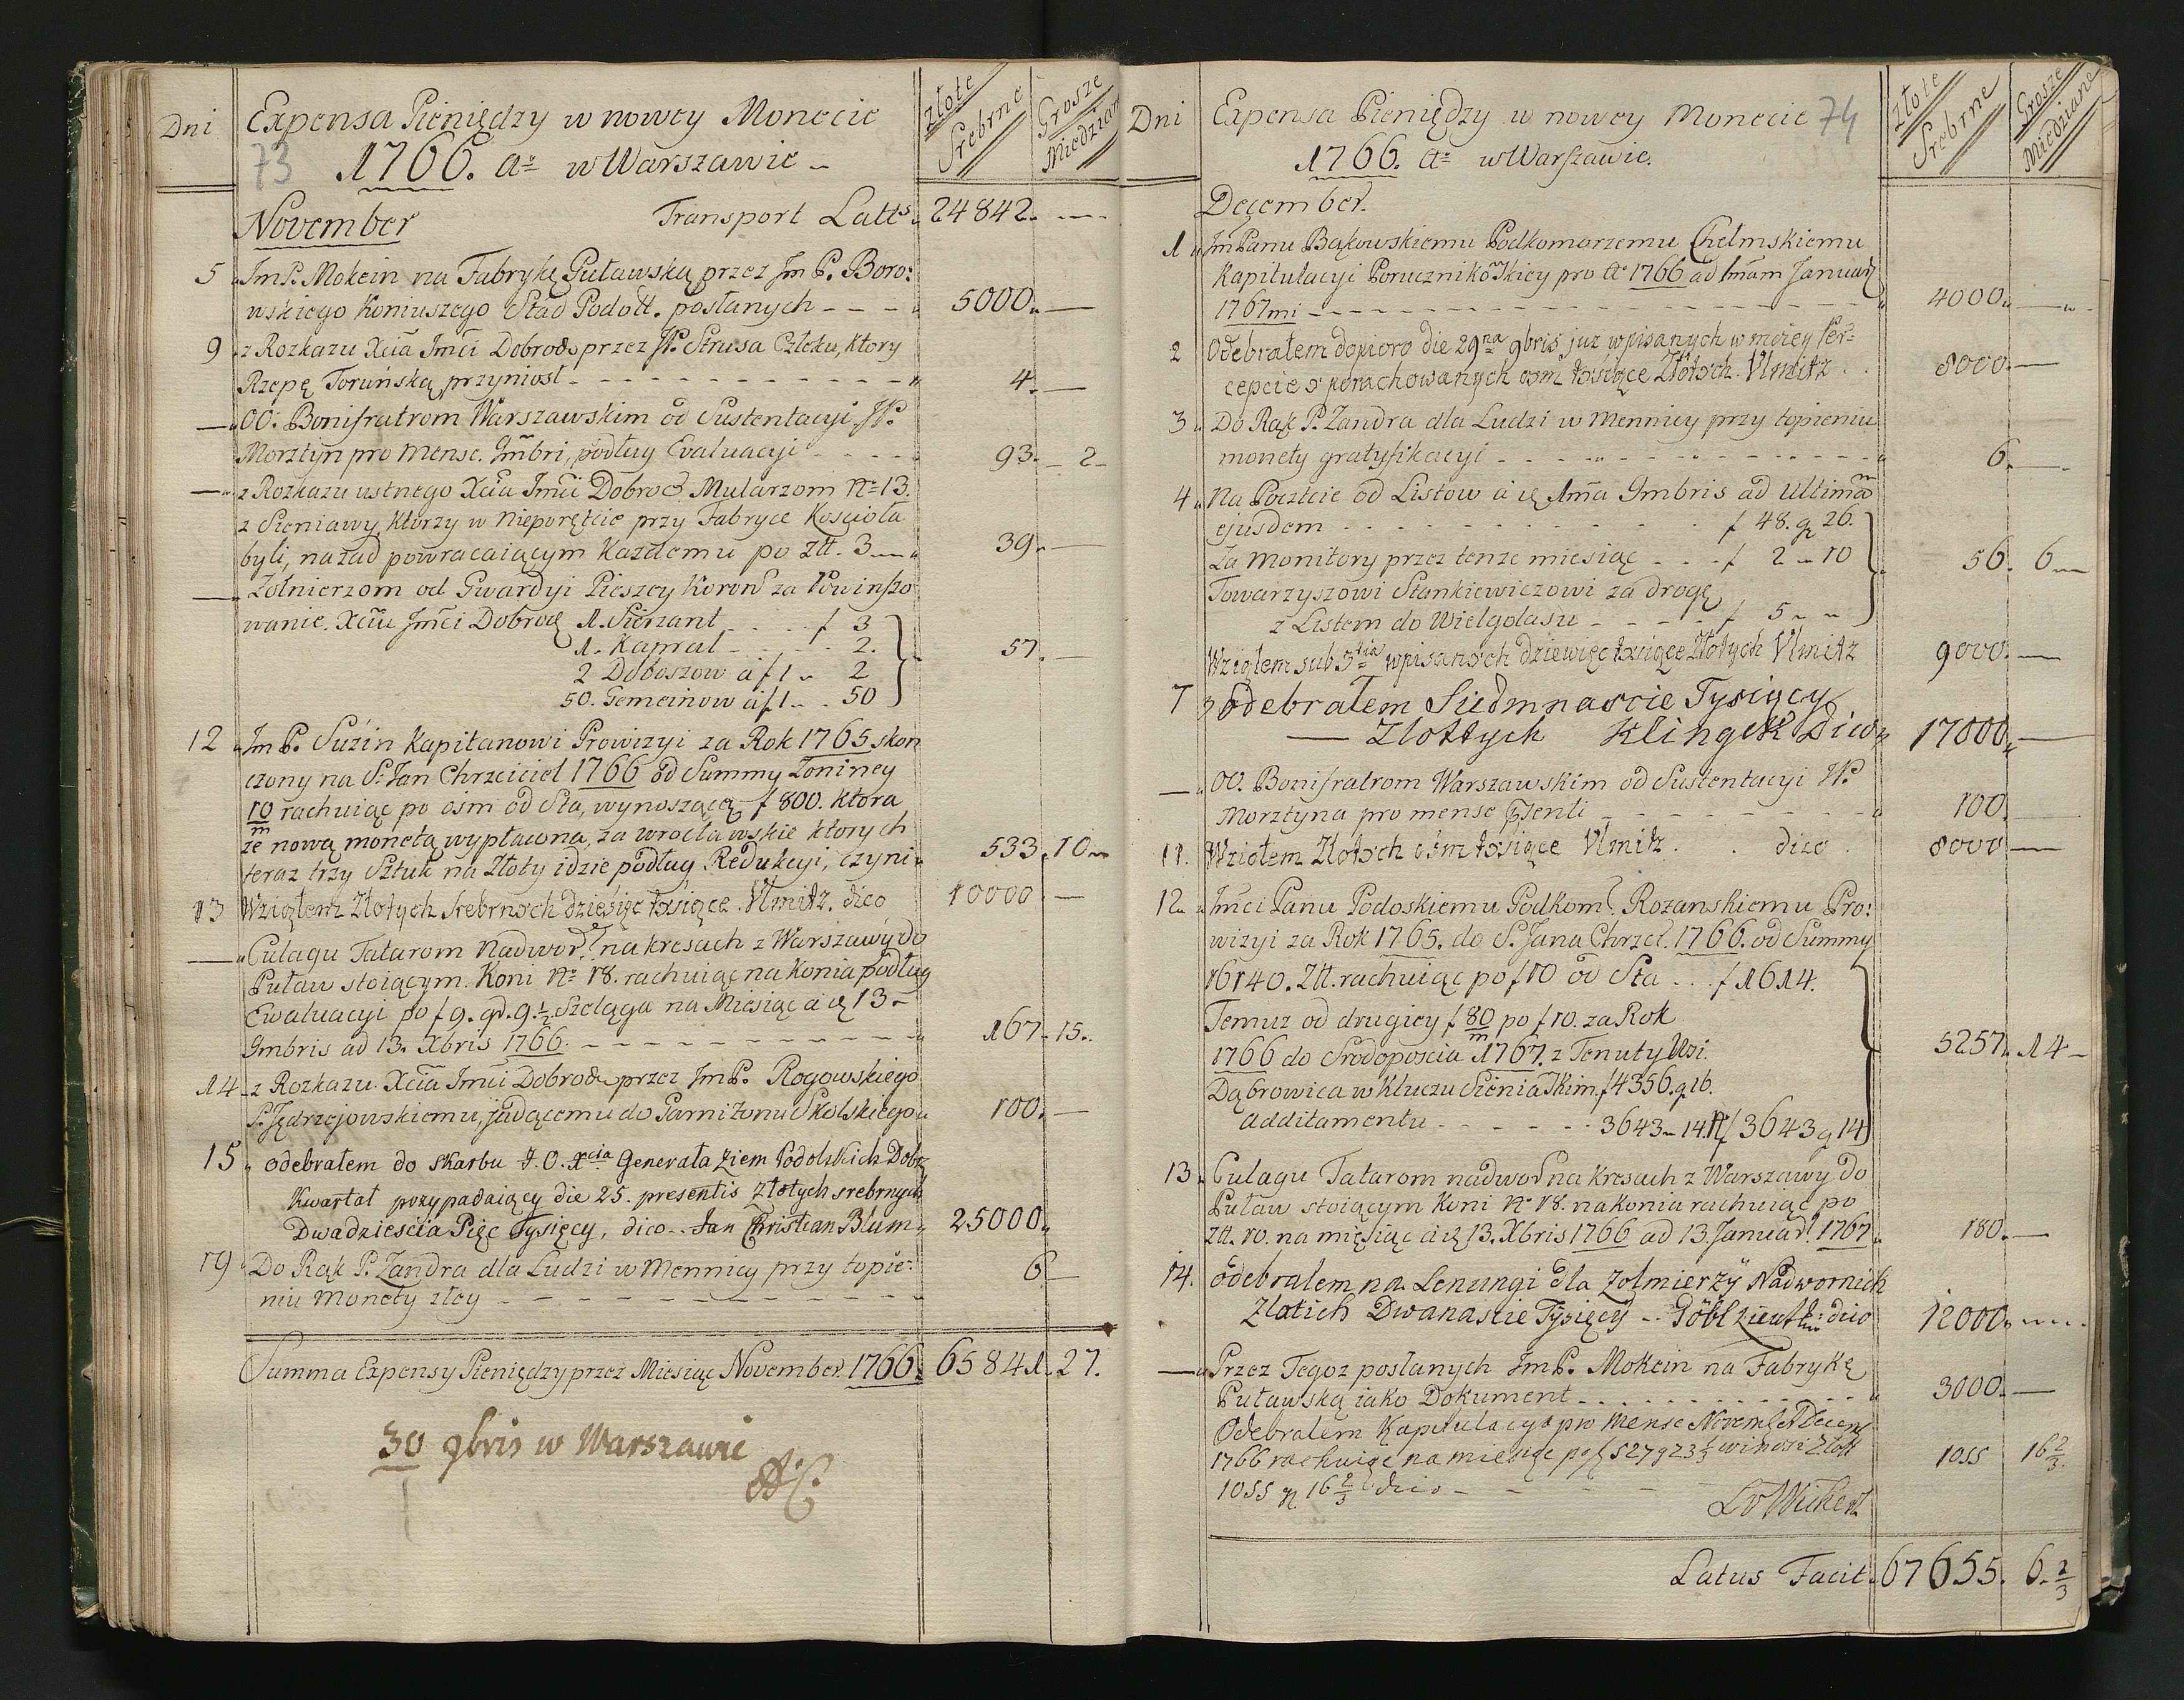 Dni
Expensa Pieniędzy w nowey Monecie
73 1766. Aº w Warszawie
Złote Srebrne
Grosze Miedziane
November Transport Latts 24842.
5 ImP. Mokein na Fabrykę Puławską przez Im P. Boro:
wskiego Koniuszego Stad Podoll. posłanych 5000.
9 z Rozkazu Xcia Imci Dobrod. przez JP. Strusa Czleku, ktory
Rzepę Toruńską przyniosł 4.
OO. Bonifratrom Warszawskim od Sustentacyi JP.
Morztyn pro Mense 9mbri, podług Evaluacyi 93. 2
z Rozkazu ustnego Xcia Imci Dobrod. Mularzom Nº 13.
z Sieniawy, ktorzy w Nieporęcie przy Fabryce Kosciola
byli, nazad powracaiącym Kazdemu po Złł. 3 39.
Zołnierzom od Gwardyi Pieszey Koron za Powinszo
wanie. Xciu Imci Dobrod 1. Sierzant f 3
1. Kapral 2. 57.
2 Doboszow a f 1 2
50. Gemeinow a f 1 50
12 Im P. Suzin Kapitanowi Prowizyi za Rok 1765 skon
czony na S. Jan Chrzciciel 1766 od Summy Łoniney
10/m rachuiąc po ośm od Sta, wynoszącą f 800. ktora
ze nową monetą wypłacona, za wrocławskie ktorych
teraz trzy Sztuk na Złoty idzie podług Redukcyi, czyni 533. 10
13 Wziąłem Złotych Srebrnych dziesięc tysiące. Ulmitz. dico 10000.
Culagu Tatarom Nadwor. na kresach z Warszawy do
Puław stoiącym. Koni Nº 18. rachuiąc na Konia podług
Ewaluacyi po f 9. gr. 9. ½ Szeląga na Miesiąc a 13
9mbris ad 13. Xbris 1766. 167. 15.
14 z Rozkazu Xcia Imci Dobrod. przez ImP. Rogowskiego
P. Jędrzejowskiemu, jadącemu do Garnizonu Skolskiego 100.
15 odebrałem do skarbu J. O. Xcia Generała Ziem Podolskich Dobr.
Kwartał przypadaiący die 25. presentis Złotych srebrnych
Dwadziescia Pięc Tysięcy, dico.. Jan Christian Blum 25000.
19 Do Rąk P. Zandra dla Ludzi w Mennicy przy topie:
niu Monety złey 6
Summa Expensy Pieniędzy przez Miesiąc November. 1766. 65841. 27.
30 9bris w Warszawie
Dni
Expensa Pieniędzy w nowey Monecie 74
1766. Aº w Warszawie.
Złote Srebrne
Grosze Miedziane
December.
1 Im Panu Bąkowskiemu Podkomorzemu Chelmskiemu
Kapitulacyi Porucznikowskiey pro Aº 1766 ad 1mam Januarÿ
1767mi 4000.
2 Odebrałem dopioro die 29na 9bris juz wpisanych w moiey Per:
cepcie y porachowanych osm tysiące Złotych. Ulmitz. 8000.
3 Do Rąk P. Zandra dla Ludzi w Mennicy przy topieniu
monety gratyfikacyi 6.
4 Na Poczcie od Listow a 1ma 9mbris ad Ultimam
ejusdem f 48. g 26.
Za Monitory przez tenze miesiąc f 2 10 56. 6
Towarzyszowi Stankiewiczowi za drogę
z Listem do Wielgolasu f 5
Wziąłem sub 5ta wpisanych dziewięc tysiące Złotych Ulmitz 9000.
7 odebrałem Siedmnascie Tysięcy
Złottych Klingek Dico 17000.
OO. Bonifratrom Warszawskim od Sustentacyi JP.
Morztyna pro mense Psenti 100.
11. Wziołem Złotych ośm tysiące Ulmitz. dico. 8000
12 Imci Panu Podoskiemu Podkom. Rozanskiemu Pro:
wizyi za Rok 1765. do S. Jana Chrzcl. 1766. od Summy
16140. Złł. rachuiąc po f 10 od Sta f 1614.
Temuz od drugiey f 80/m po f 10. za Rok
1766 do Srodoposcia 1767. z Tenuty Wsi. 5257. 14
Dąbrowica w Kluczu Sieniaskim. f 4356. g 16.
additamentu 3643 14. f 3643 g 14
13. Culagu Tatarom nadwor. na kresach z Warszawy do
Puław stoiącym Koni Nº 18. na konia rachuiąc po
Złł. 10. na miesiąc a 13. Xbris 1766 ad 13. Januar. 1767. 180.
14. odebrałem na Lenungi dla Zolmierzÿ Nadwornich
Zlotich Dwanascie Tysięcÿ dico 12000.
Przez Tegoz posłanych ImP. Mokein na Fabrykę
Puławską iako Dokument 3000.
Odebrałem Kapitulacyą pro Mense Novemb. Decem
1766 rachuiąc na miesiąc po f 527 g 23 1/3 winosi Złott 1055 16 2/3
1055 g 16 2/3 dico
Latus Facit. 67655. 6. 2/3